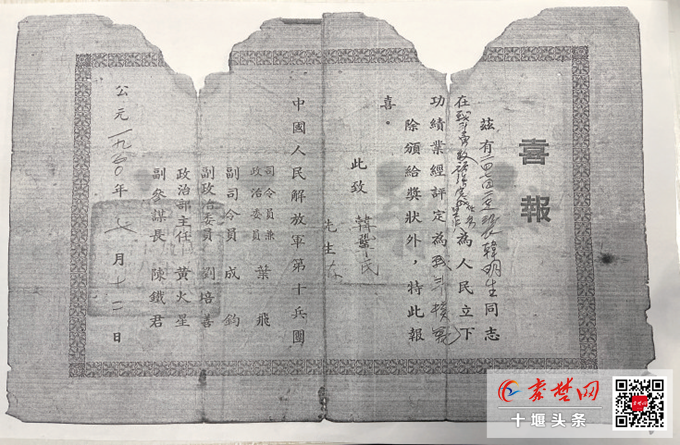 喜報
茲有
韓明生同志
在
為人民立下
功績業經評定為
除頒給獎狀外，特此報
喜。
此致
先生
中國人民解放軍第十兵團
司令員兼
政治委員 葉飛
副司令員 成鈞
副政治委員 劉培善
政治部主任 黃火星
副參謀長 陳鐵君
公元一九五〇年 月十一日
秦楚网
十堰头条